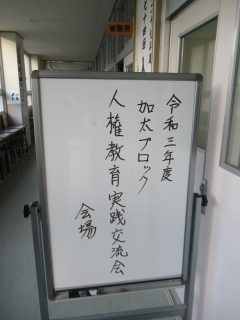 令和三年度
加太ブロック
人権教育実践交流会
会場